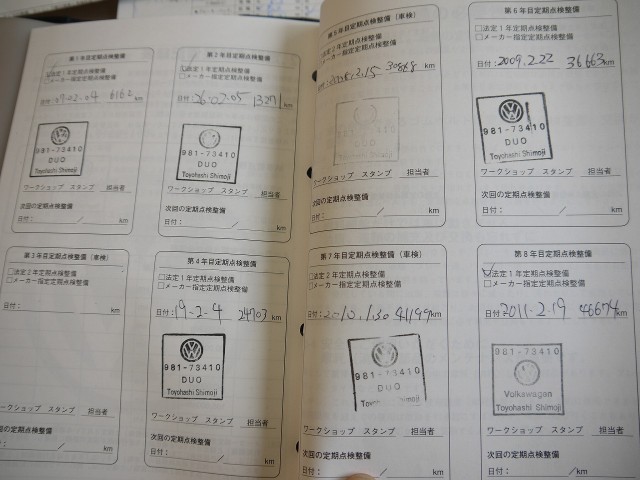 第1年目定期点検整備
法定1年定期点検整備
メーカー指定定期点検整備
日付: 07-02-04 6162 km
981-73410
DUO
Toyohashi Shimoji
ワークショップ スタンプ 担当者
次回の定期点検整備
日付: / km
第2年目定期点検整備
法定1年定期点検整備
メーカー指定定期点検整備
日付: 26-02-05 13271 km
981-73410
DUO
Toyohashi Shimoji
ワークショップ スタンプ 担当者
次回の定期点検整備
日付: / km
第3年目定期点検整備(車検)
法定2年定期点検整備
メーカー指定定期点検整備
日付: km
ワークショップ スタンプ 担当者
次回の定期点検整備
日付: / km
第4年目定期点検整備
法定1年定期点検整備
メーカー指定定期点検整備
日付: 19-2-4 24703 km
981-73410
DUO
Toyohashi Shimoji
ワークショップ スタンプ 担当者
次回の定期点検整備
日付: / km
第5年目定期点検整備(車検)
法定2年定期点検整備
メーカー指定定期点検整備
日付: 2.15 30868 km
ワークショップ スタンプ 担当者
次回の定期点検整備
日付: / km
第6年目定期点検整備
法定1年定期点検整備
メーカー指定定期点検整備
日付: 2009.2.22 36663 km
981-73410
DUO
Toyohashi Shimoji
ワークショップ スタンプ 担当者
次回の定期点検整備
日付: / km
第7年目定期点検整備(車検)
法定2年定期点検整備
メーカー指定定期点検整備
日付: 2010.1.30 41199 km
981-73410
DUO
ワークショップ スタンプ 担当者
次回の定期点検整備
日付: / km
第8年目定期点検整備
法定1年定期点検整備
メーカー指定定期点検整備
日付: 2011-2-19 46674 km
981-73410
Volkswagen
Toyohashi Shimoji
ワークショップ スタンプ 担当者
次回の定期点検整備
日付: / km